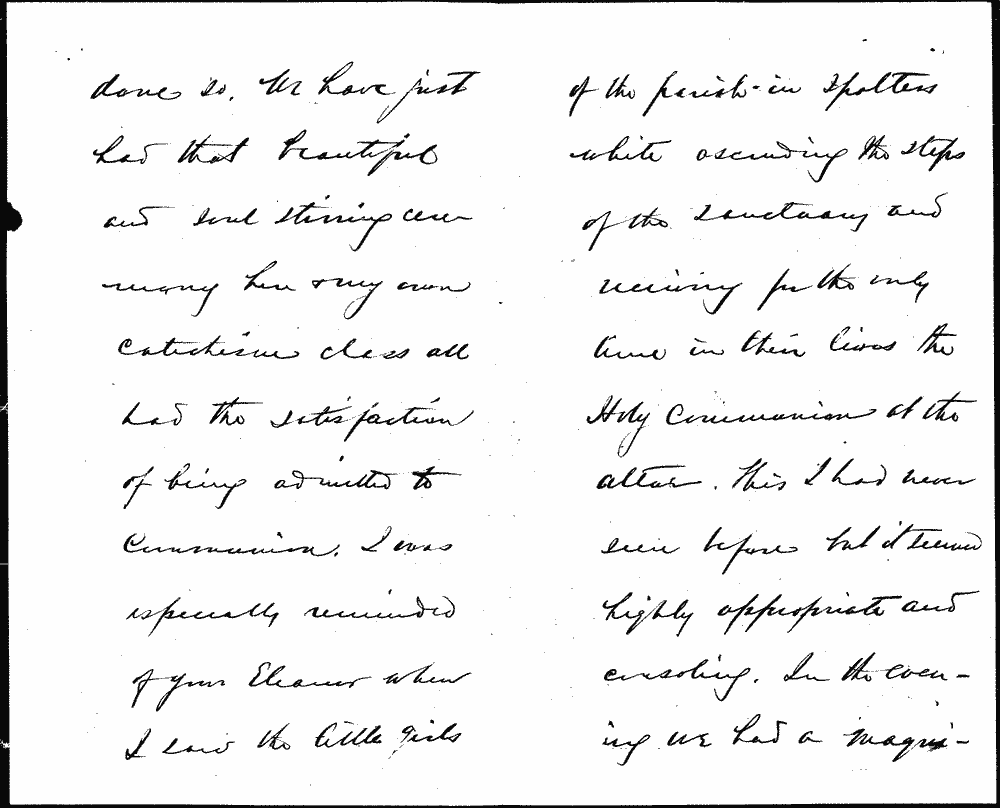 done so. We have just
had that beautiful
and soul stirring cere-
mony here & my own
Catechism class all
had the satisfaction
of being admitted to
Communion. I was
especially reminded
of your Eleanor when
I saw the little girls
of the parish - in spotless
white ascending the steps
of the Sanctuary and
receiving for the only
time in their lives the
Holy Communion at the
altar. This I had never
seen before but it seemed
highly appropriate and
consoling. In the even-
ing we had a magni-